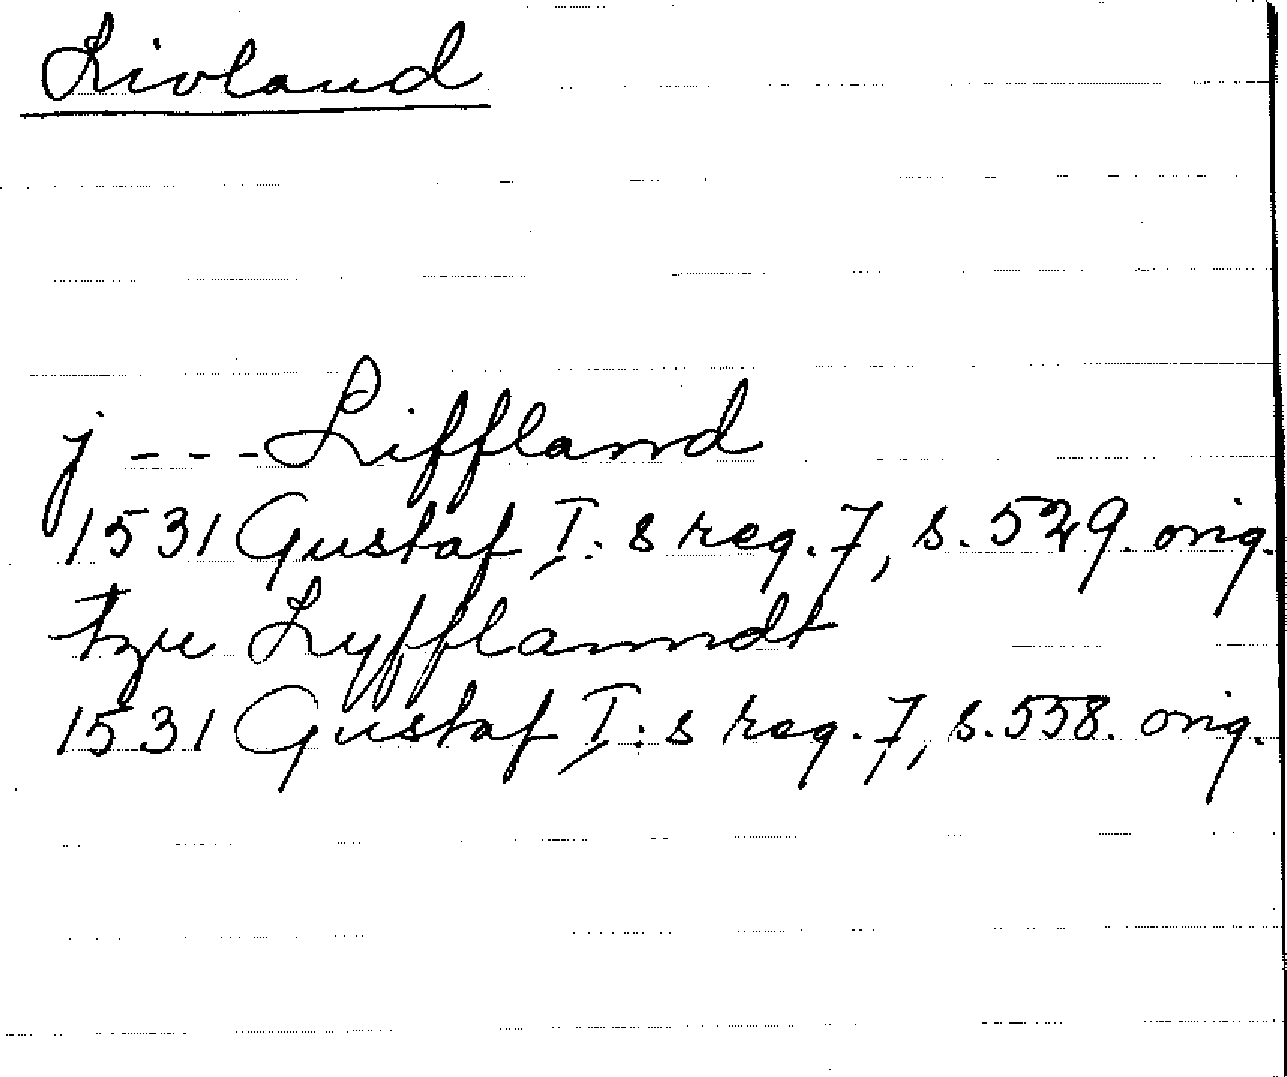 Livland
j - - - Liffland
1531 Gustaf I:s reg. 7, s. 529. orig.
tzu Lyfflanndt
1531 Gustaf I:s reg. 7, s. 558. orig.